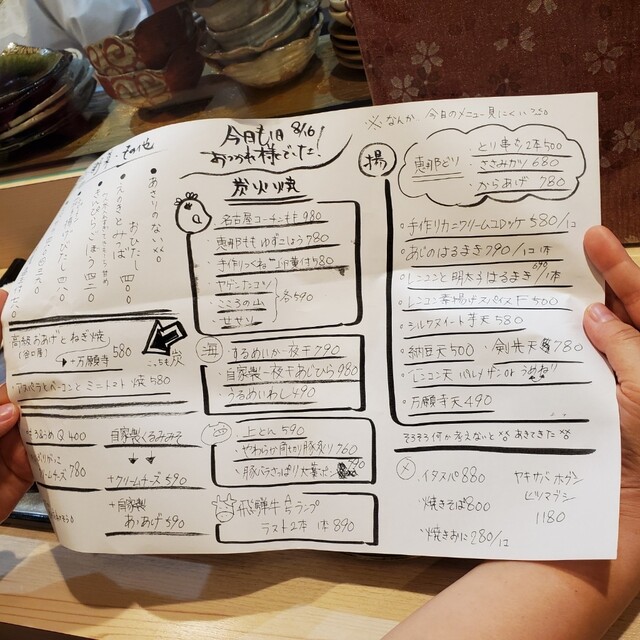 ※なんか、今日のメニュー見にくい
今日も1日 8/16!
おつかれ様でした!
炭火焼
名古屋コーチンもも 980
恵那もも ゆずこしょう 780
手作りつくね 580
ヤゲンナンコツ
こころの山 各590
セセリ
海
するめいか一夜干 790
自家製一夜干あじひらき 980
うるめいわし 490
上とん 590
やわらか角切り豚炙り 760
豚バラさっぱり大葉ポン
飛騨牛
ランプ
ラスト2本 1本 890
揚
恵那どり
とり串 2本 500
ささみカツ 680
からあげ 780
手作りカニクリームコロッケ 580/1コ
あじのはるまき 790/1本
レンコンと明太子はるまき 690/1本
レンコン素揚げスパイスF 500
シルクスイート芋天 580
納豆天 500
剣先天 780
レンコン天 パルメザン or うめね
万願寺天 490
そろそろ何か考えないと あきてきた
〆
イタスパ 880
焼きそば 800
焼きおに 280/1コ
ヤキサバ ホグシ
ヒツマブシ
1180
・その他
あさりのないぐ
えのきとみつば
おひたし 400
高級おあげとねぎ焼
580
+万願寺
こっちも炭
ベーコンとミニトマト焼 580
Q 400
クリームチーズ 780
自家製くるみみそ
+クリームチーズ 590
+自家製
あ・あげ 590